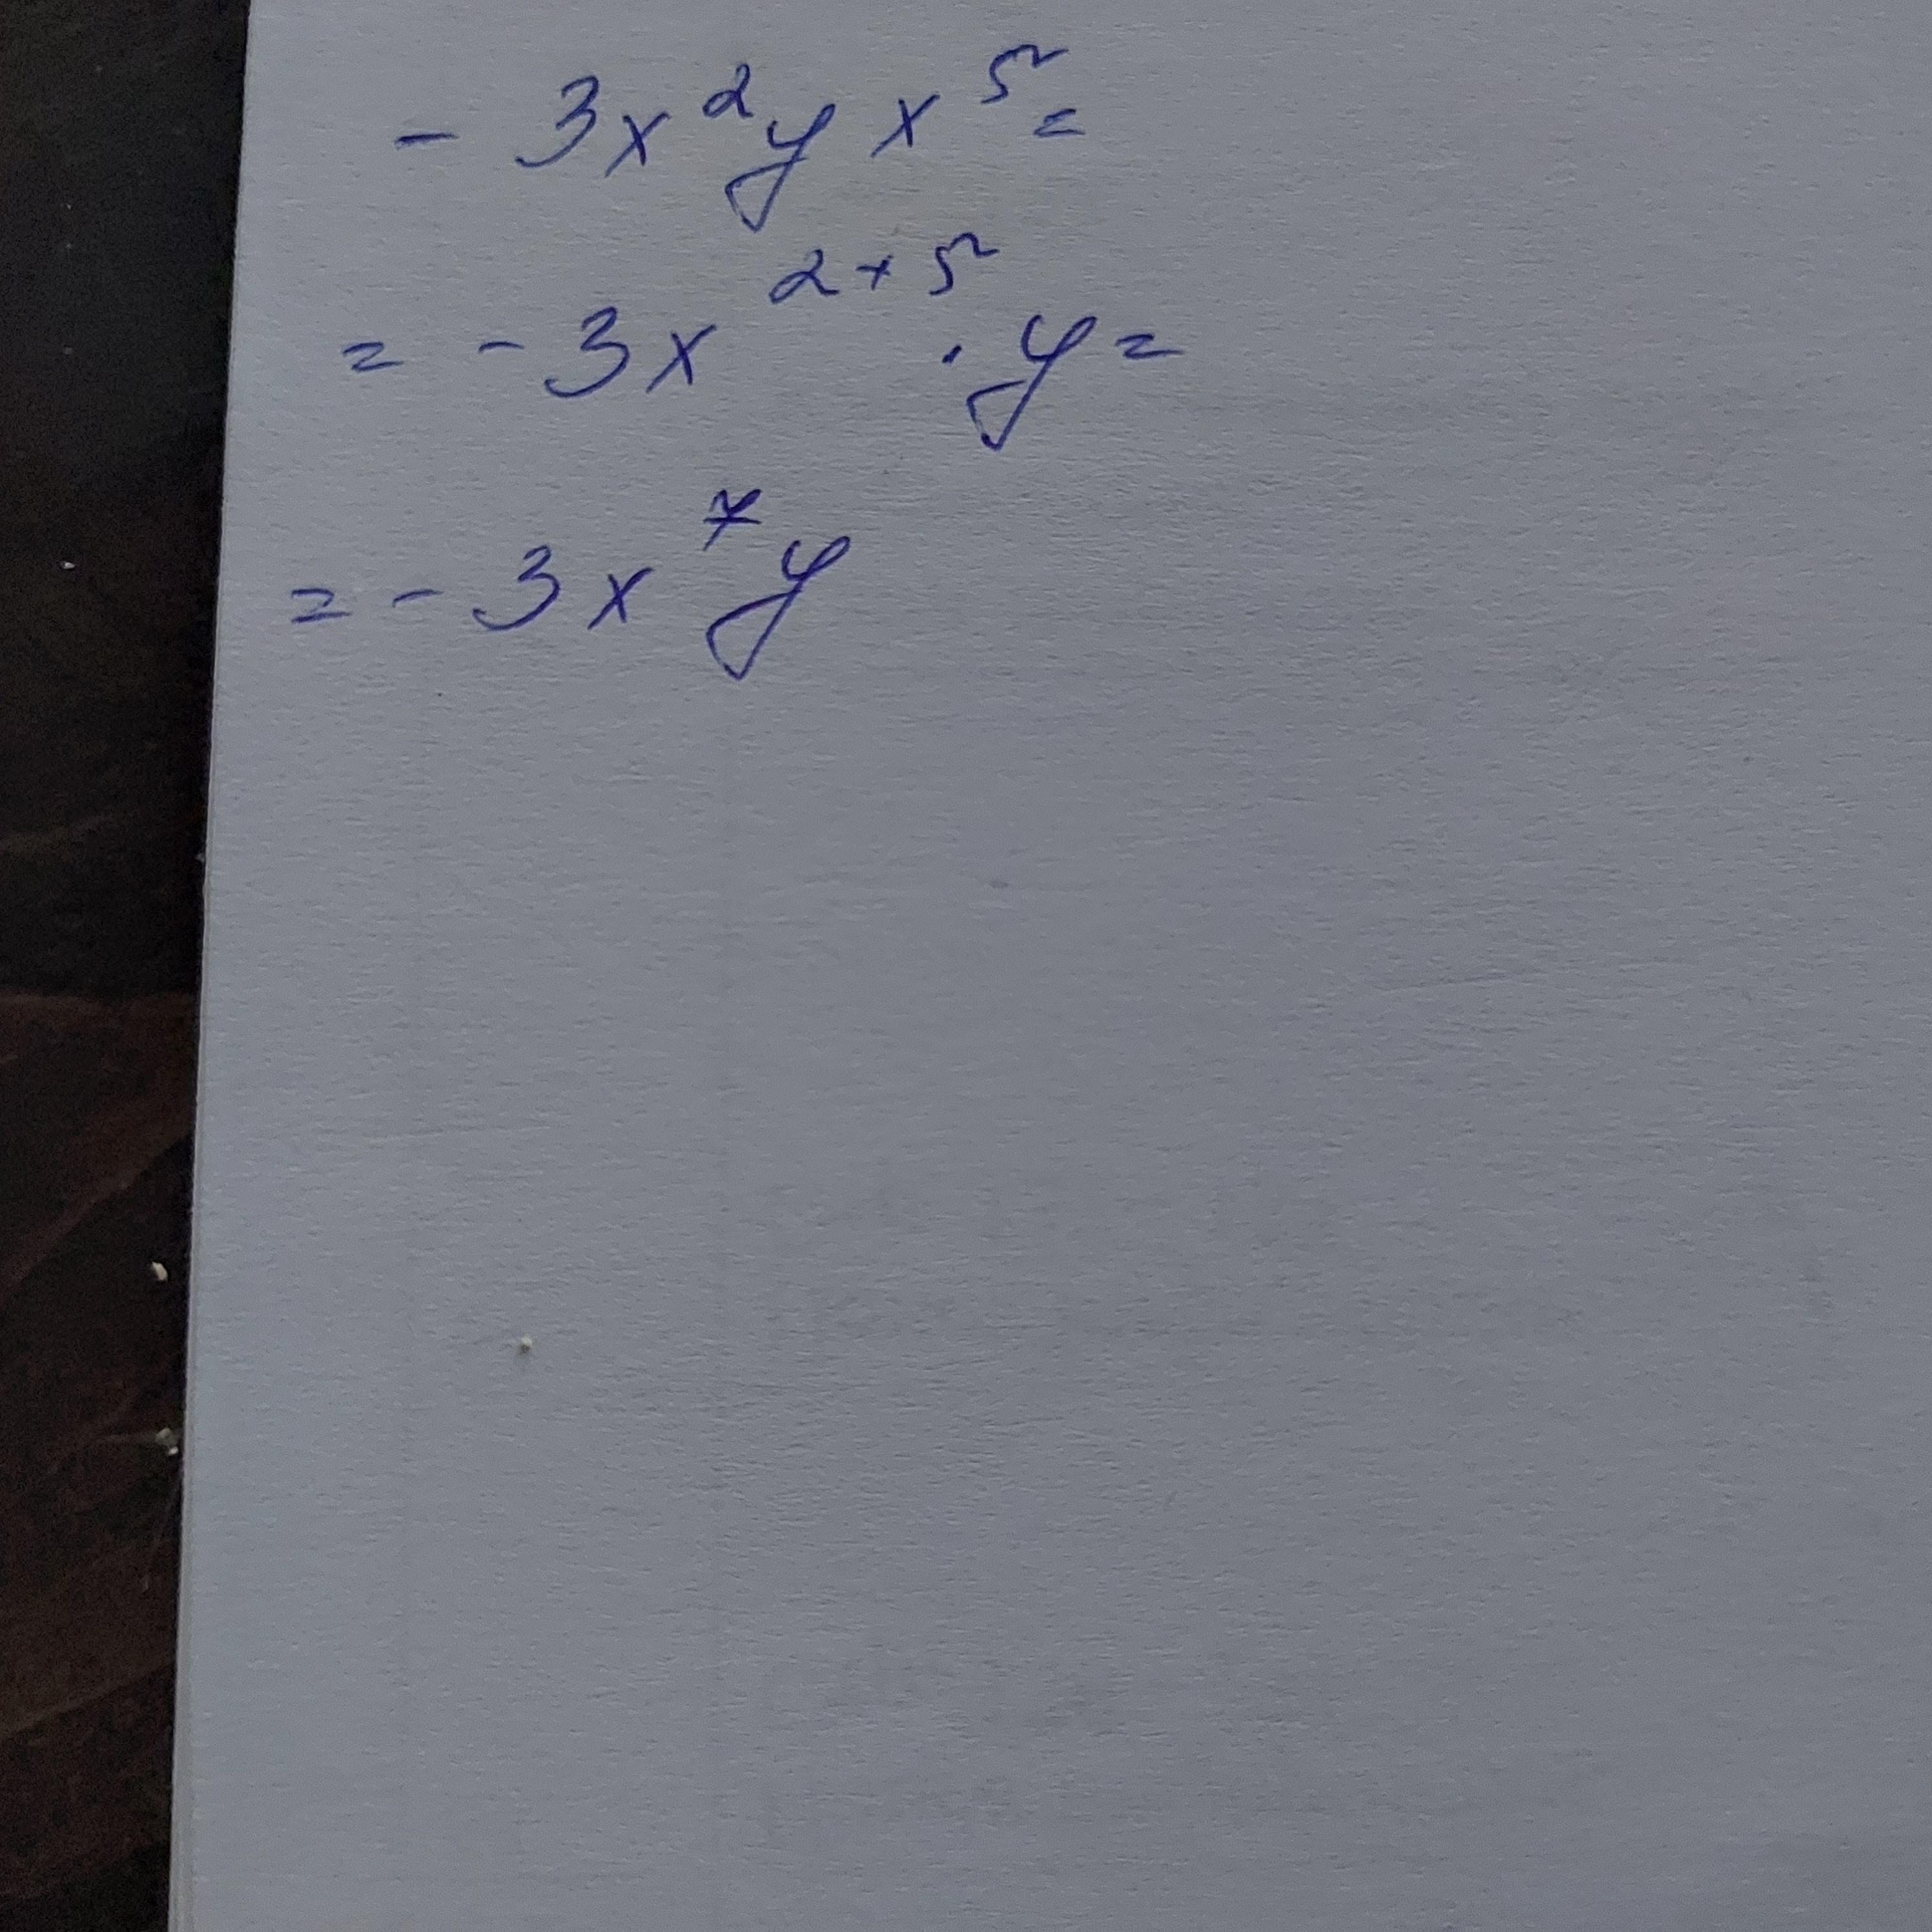 - 3x²y x⁵ =
= - 3x²⁺⁵ · y =
= - 3x⁷y